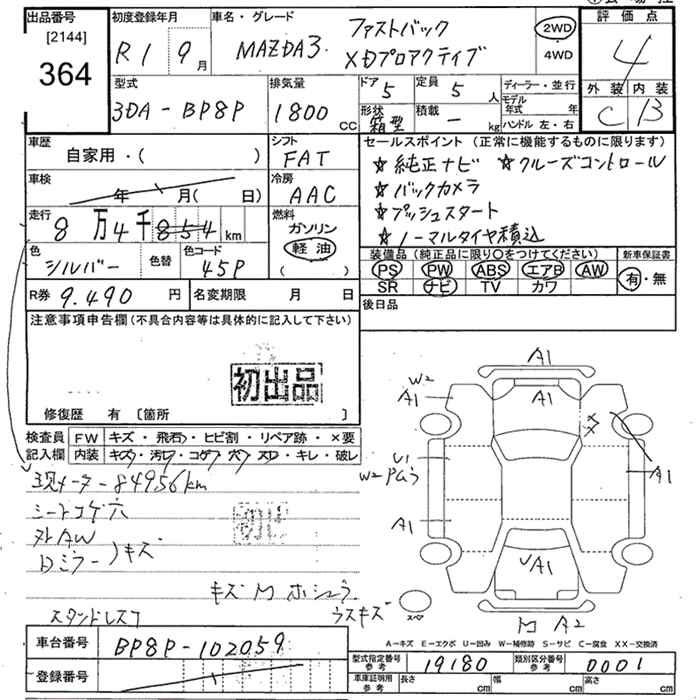 出品番号 初度登録年月 車名・グレード 評価点
[2144] R1 9月 MAZDA3 ファストバック 2WD 4
364 XDプロアクティブ 4WD
型式 排気量 ドア 5 定員 5人 ディーラー・並行 外装 内装
3DA-BP8P 1800 CC 形状 箱型 積載 - kg モデル年式 年 C B
ハンドル 左・右
車歴 シフト セールスポイント (正常に機能するものに限ります)
自家用・( ) FAT ☆純正ナビ ☆クルーズコントロール
車検 冷房 ☆バックカメラ
年 月( 日) AAC ☆プッシュスタート
走行 燃料 ☆ノーマルタイヤ積込
8万4千854km ガソリン
色 色替 色コード 軽油 装備品 (純正品に限り〇をつけてください) 新車保証書
シルバー 45P ( ) PS PW ABS エアB AW 有・無
SR ナビ TV カワ
R券 9.490円 名変期限 月 日 後日品
注意事項申告欄 (不具合内容等は具体的に記入して下さい)
初出品
修復歴 有 〔箇所 〕
検査員 FW キズ・飛石・ヒビ割・リペア跡・×要
記入欄 内装 キズ・汚れ・コゲ・穴・スレ・キレ・破レ
現メーター84956km
シートコゲ穴
外AW
ドミラーキズ
キズ
スタンドレスコ
ウスキズ
A1
W2
A1
A1
U1
W2
A1
A1
A1
A2
スペア
A-キズ E-エクボ U-凹み W-補修跡 S-サビ C-腐食 XX-交換済
車台番号 BP8P-102059
登録番号
型式指定番号 参考 19180 類別区分番号 参考 0001
車庫証明用 参考 長さ cm 幅 cm 高さ cm